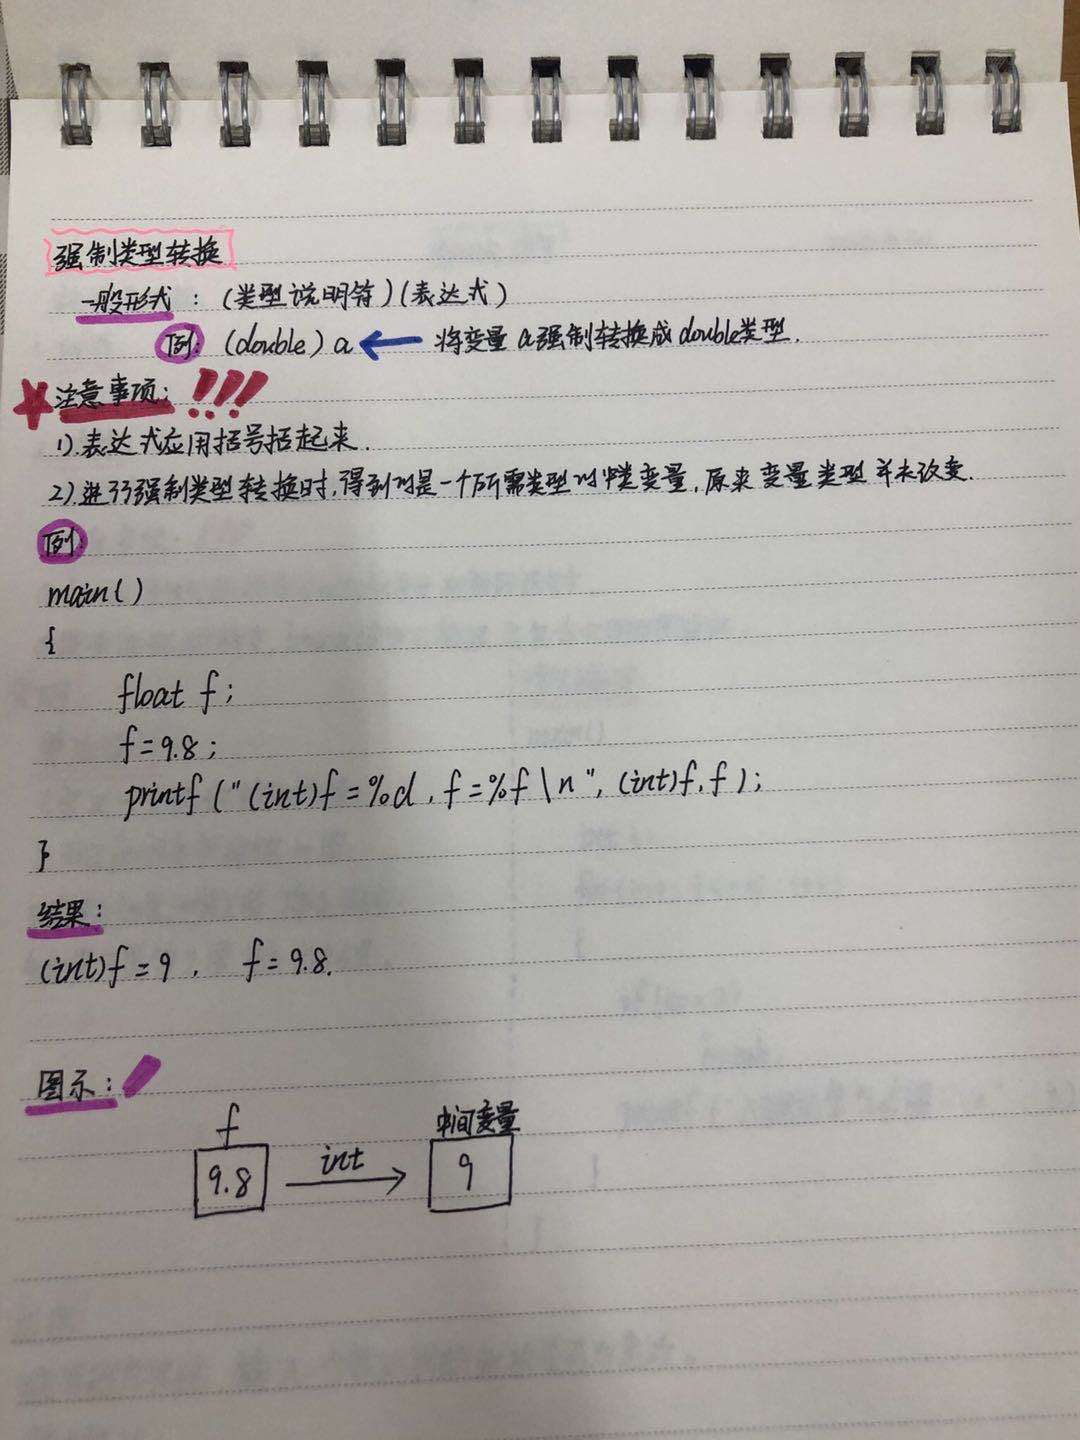 强制类型转换
一般形式：(类型说明符)(表达式)
例：(double) a ← 将变量a强制转换成double类型.
注意事项：!!!
1).表达式应用括号括起来.
2).进行强制类型转换时,得到的是一个所需类型的中间变量,原来变量类型并未改变.
例:
main()
{
float f;
f=9.8;
printf("(int)f=%d,f=%f\n",(int)f,f);
}
结果:
(int)f=9, f=9.8.
图示:
f 中间变量
9.8 int 9